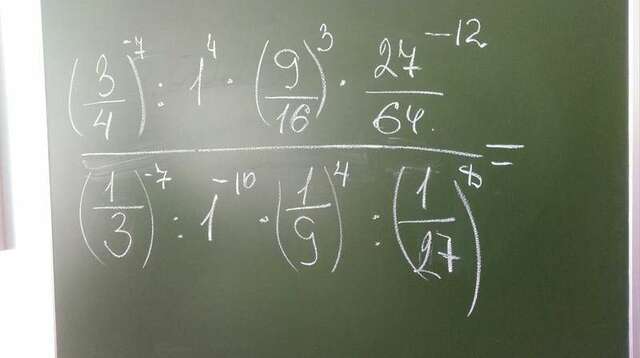 (3/4)^-7 : 1^4 · (9/16)^3 · 27^-12/64 =
(1/3)^-7 : 1^-10 · (1/9)^4 : (1/27)